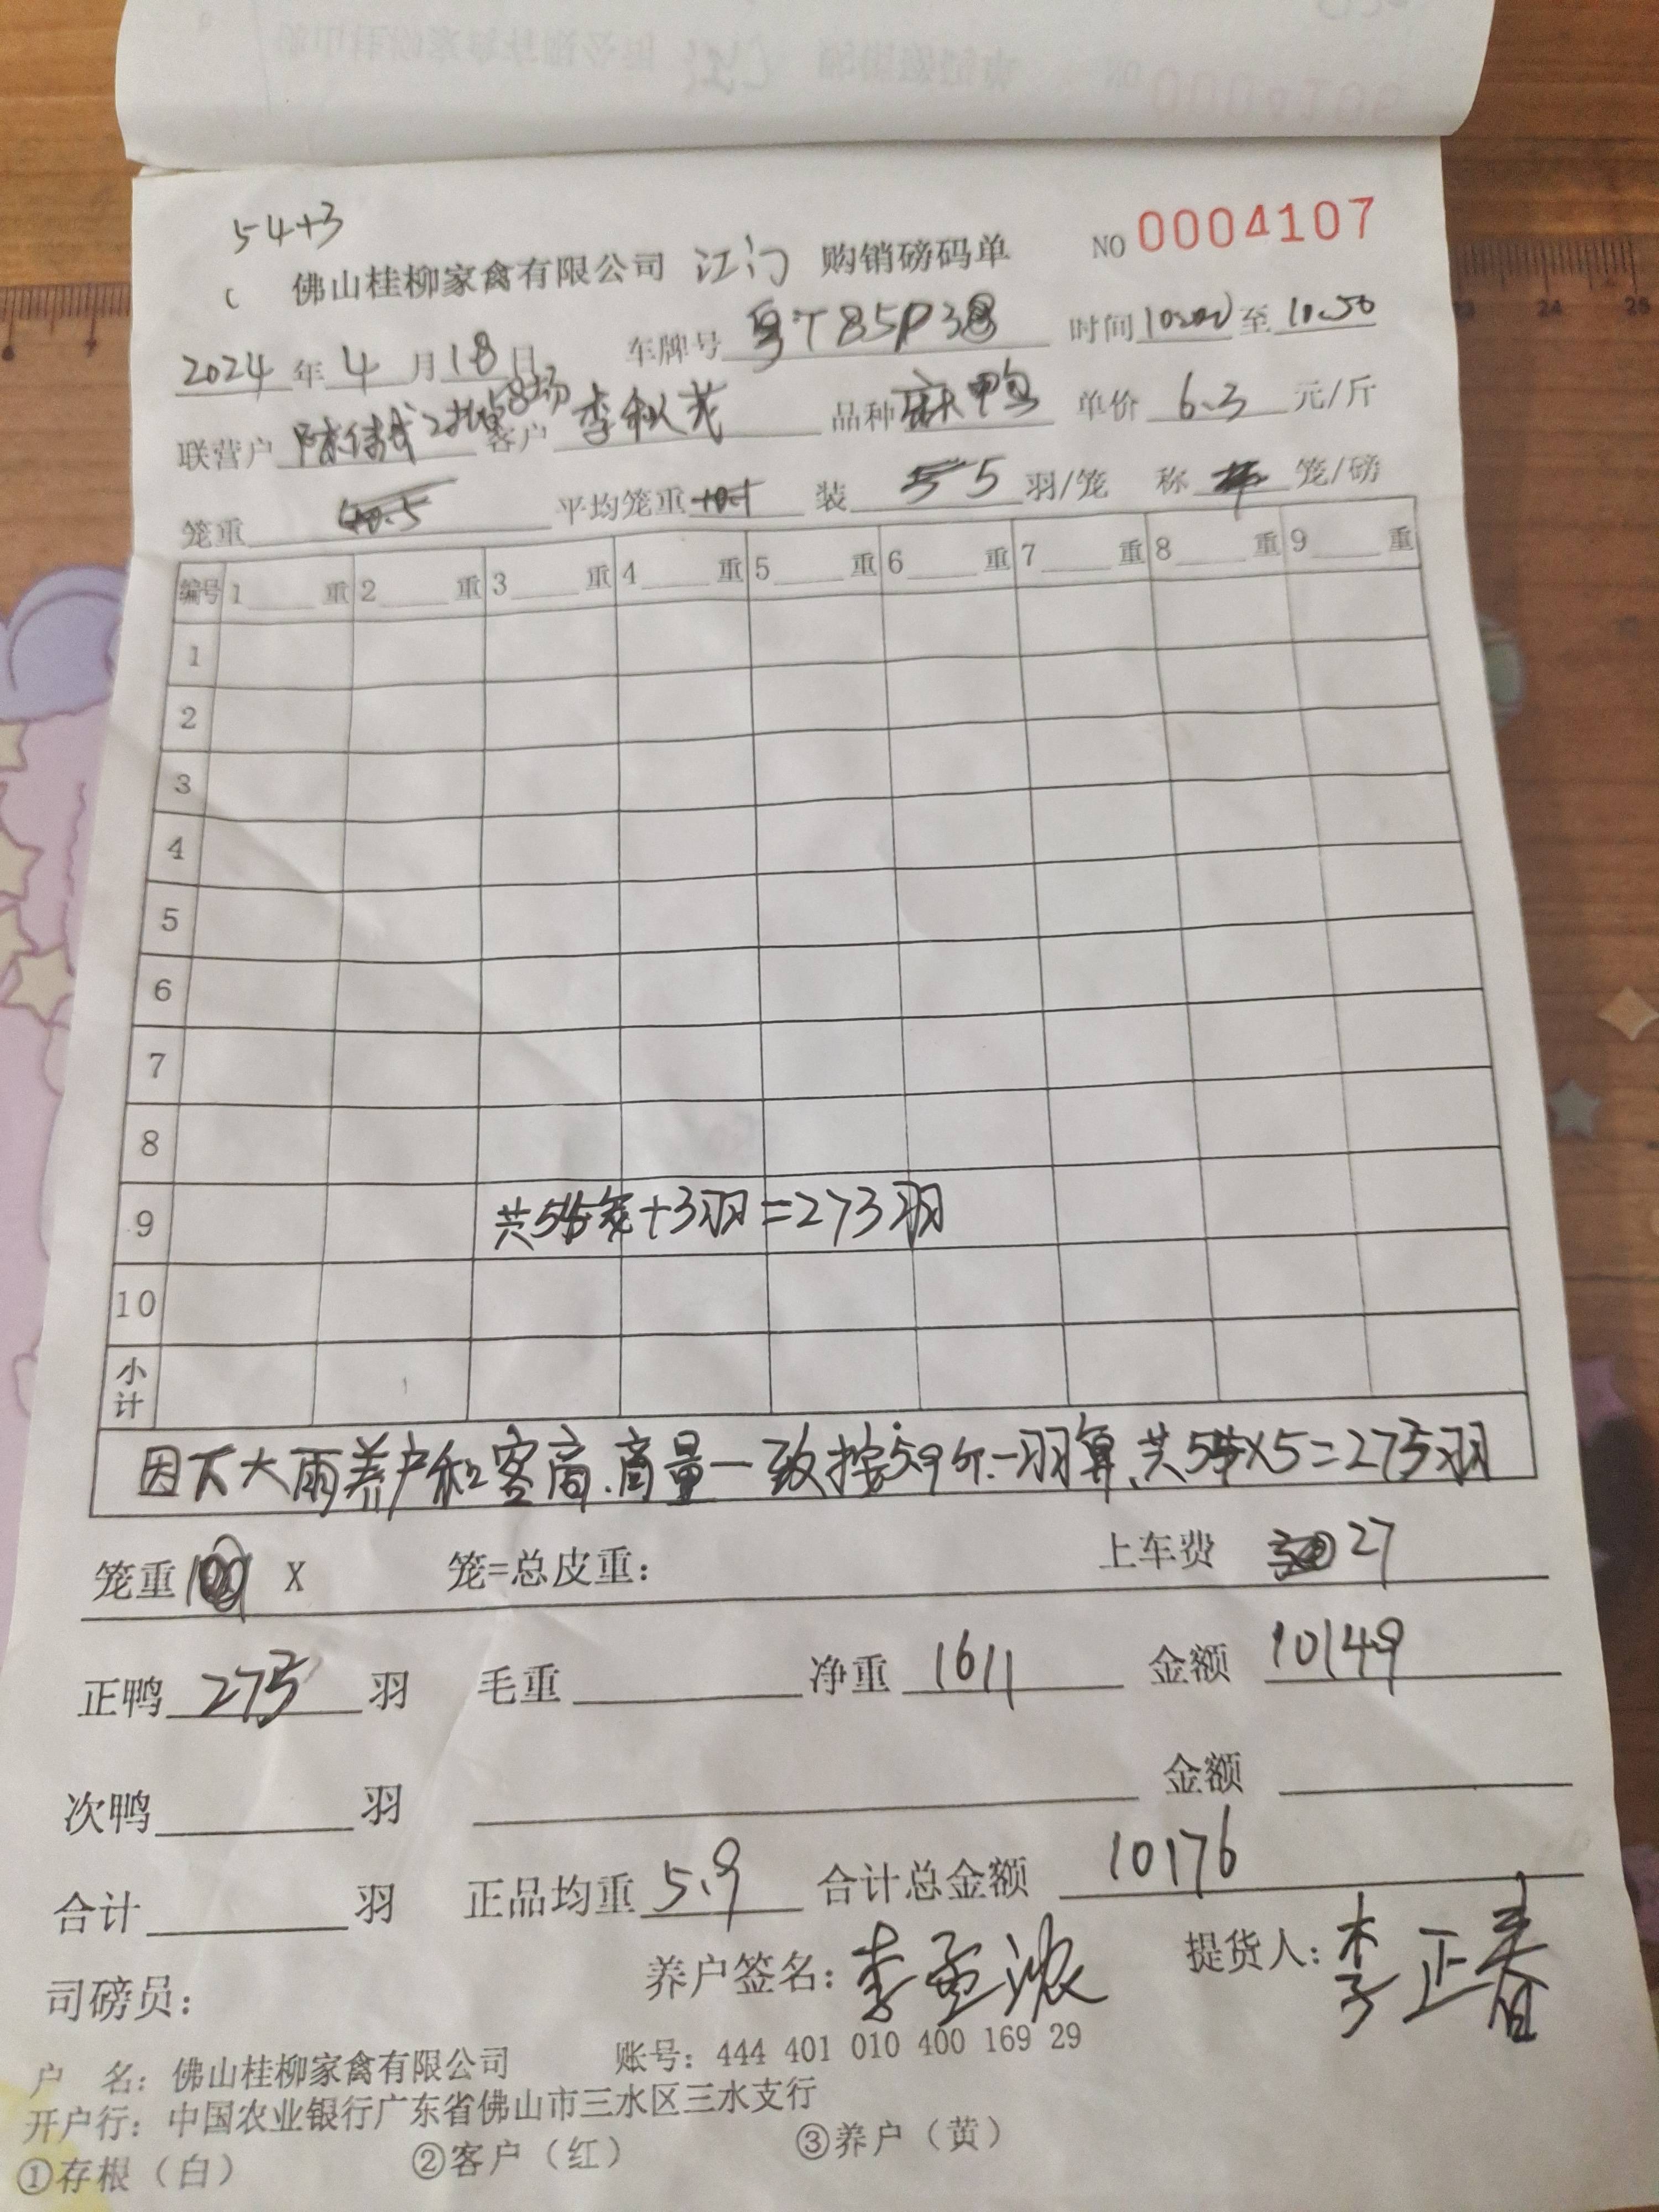 54+3
佛山桂柳家禽有限公司 江门 购销磅码单 NO 0004107
2024 年 4 月 18 日 车牌号 粤T85P38 时间 10:00 至 10.50
联营户 2批 58场 客户 李秋茂 品种 麻鸭 单价 6.3 元/斤
笼重 40.5 平均笼重 10.1 装 5 羽/笼 称 笼/磅
编号 1 重 2 重 3 重 4 重 5 重 6 重 7 重 8 重 9 重
1
2
3
4
5
6
7
8
9 共54笼+3羽=273羽
10
小计
因下大雨养户和客商.商量一致按5.9斤.一羽算.共 X5=273羽
笼重 X 笼=总皮重: 上车费 27
正鸭 273 羽 毛重 净重 1611 金额 10149
次鸭 羽 金额
合计 羽 正品均重 5.9 合计总金额 10176
司磅员: 养户签名: 李 提货人: 李正春
户 名: 佛山桂柳家禽有限公司 账号: 444 401 010 400 169 29
开户行: 中国农业银行广东省佛山市三水区三水支行
①存根(白) ②客户(红) ③养户(黄)